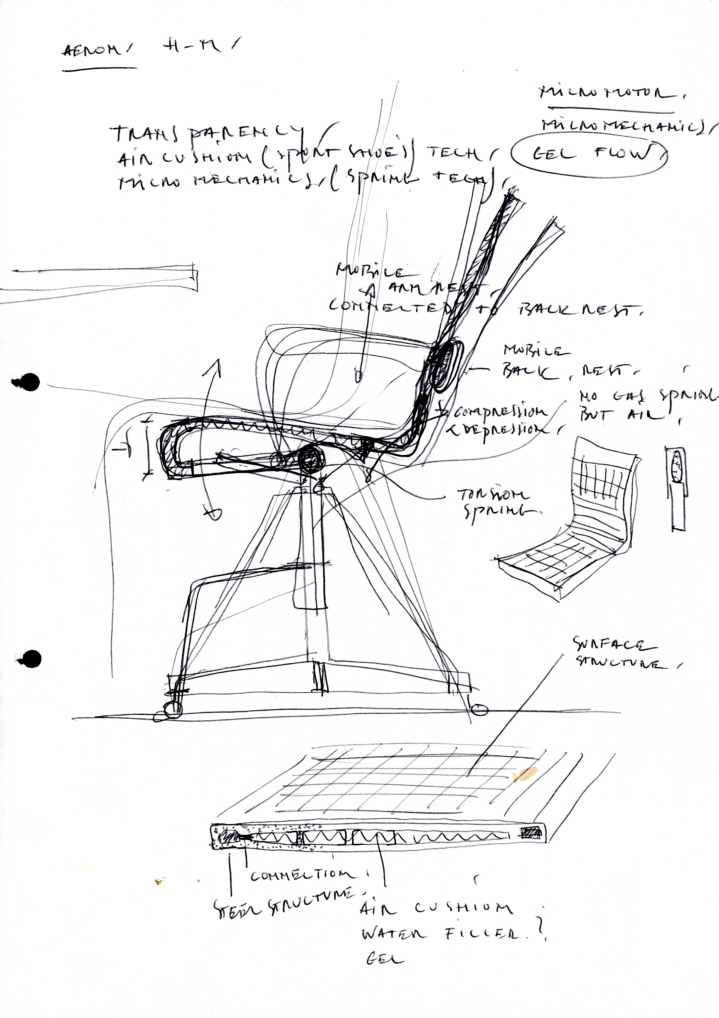 AERON / H-M /
MICROMOTOR,
MICROMECHANICS,
GEL FLOW,
TRANSPARENCY /
AIR CUSHION (SPORT SHOES) TECH,
MICRO MECHANICS, (SPRING TECH),
MOBILE
ARM REST,
CONNECTED TO BACK REST.
MOBILE
BACK REST.
NO GAS SPRING
BUT AIR,
COMPRESSION
& DEPRESSION,
TORSION
SPRING.
SURFACE
STRUCTURE,
CONNECTION,
STEEL STRUCTURE,
AIR CUSHION
WATER FILLER ?
GEL